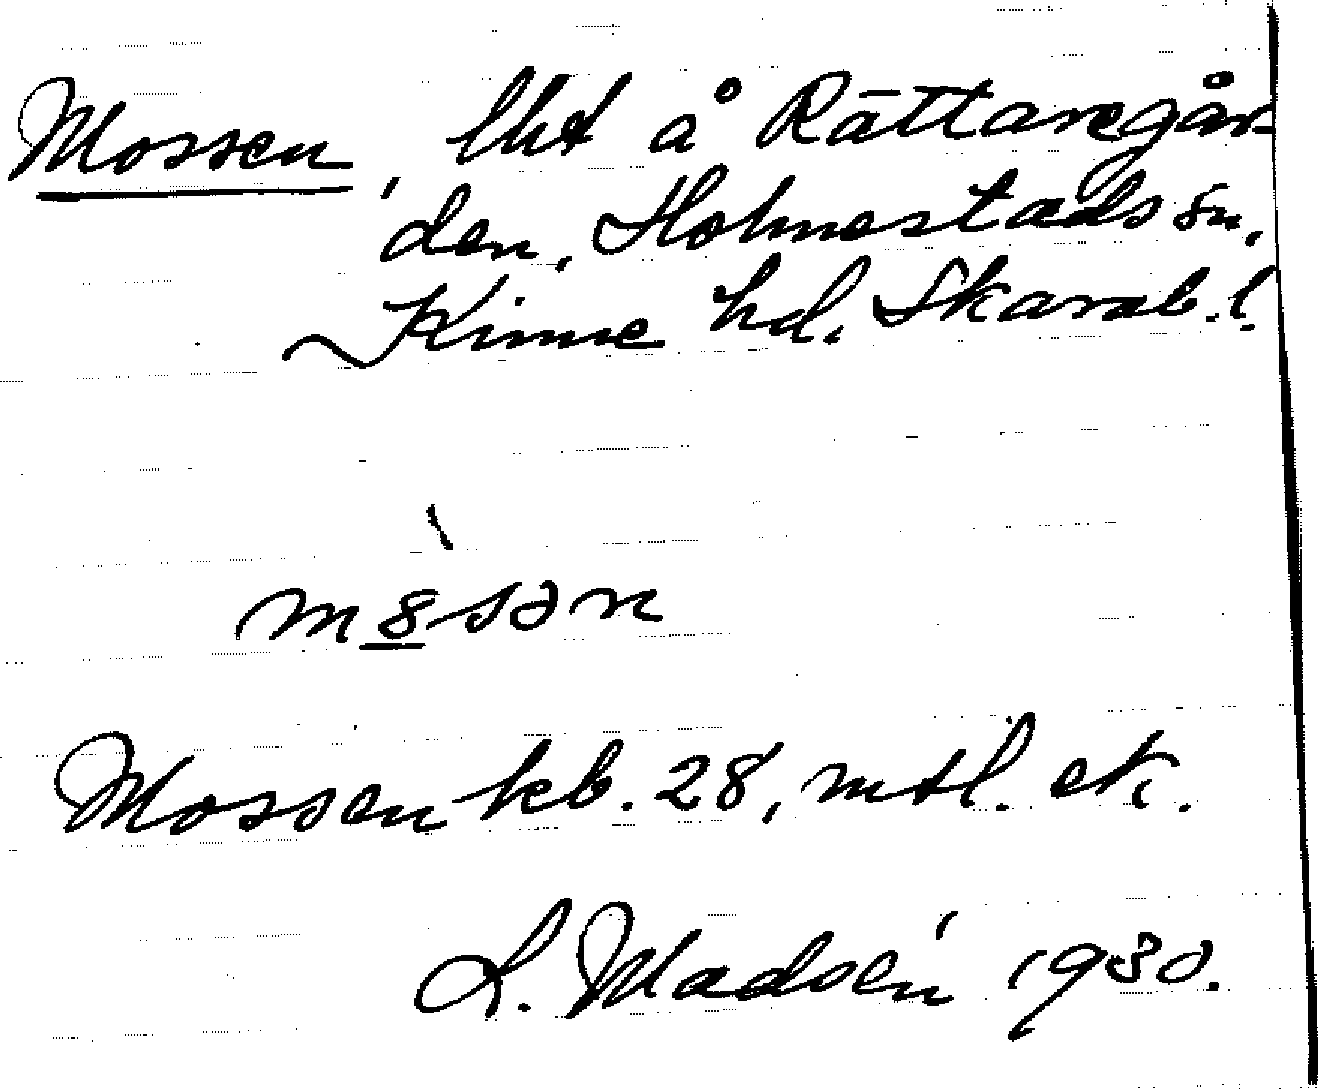 Mossen, lht å Rättaregår-
den, Holmestads sn,
Kinne hd. Skarab. l.
m8sən
Mossen kb. 28, mtl. etc.
L. Madsén 1930.